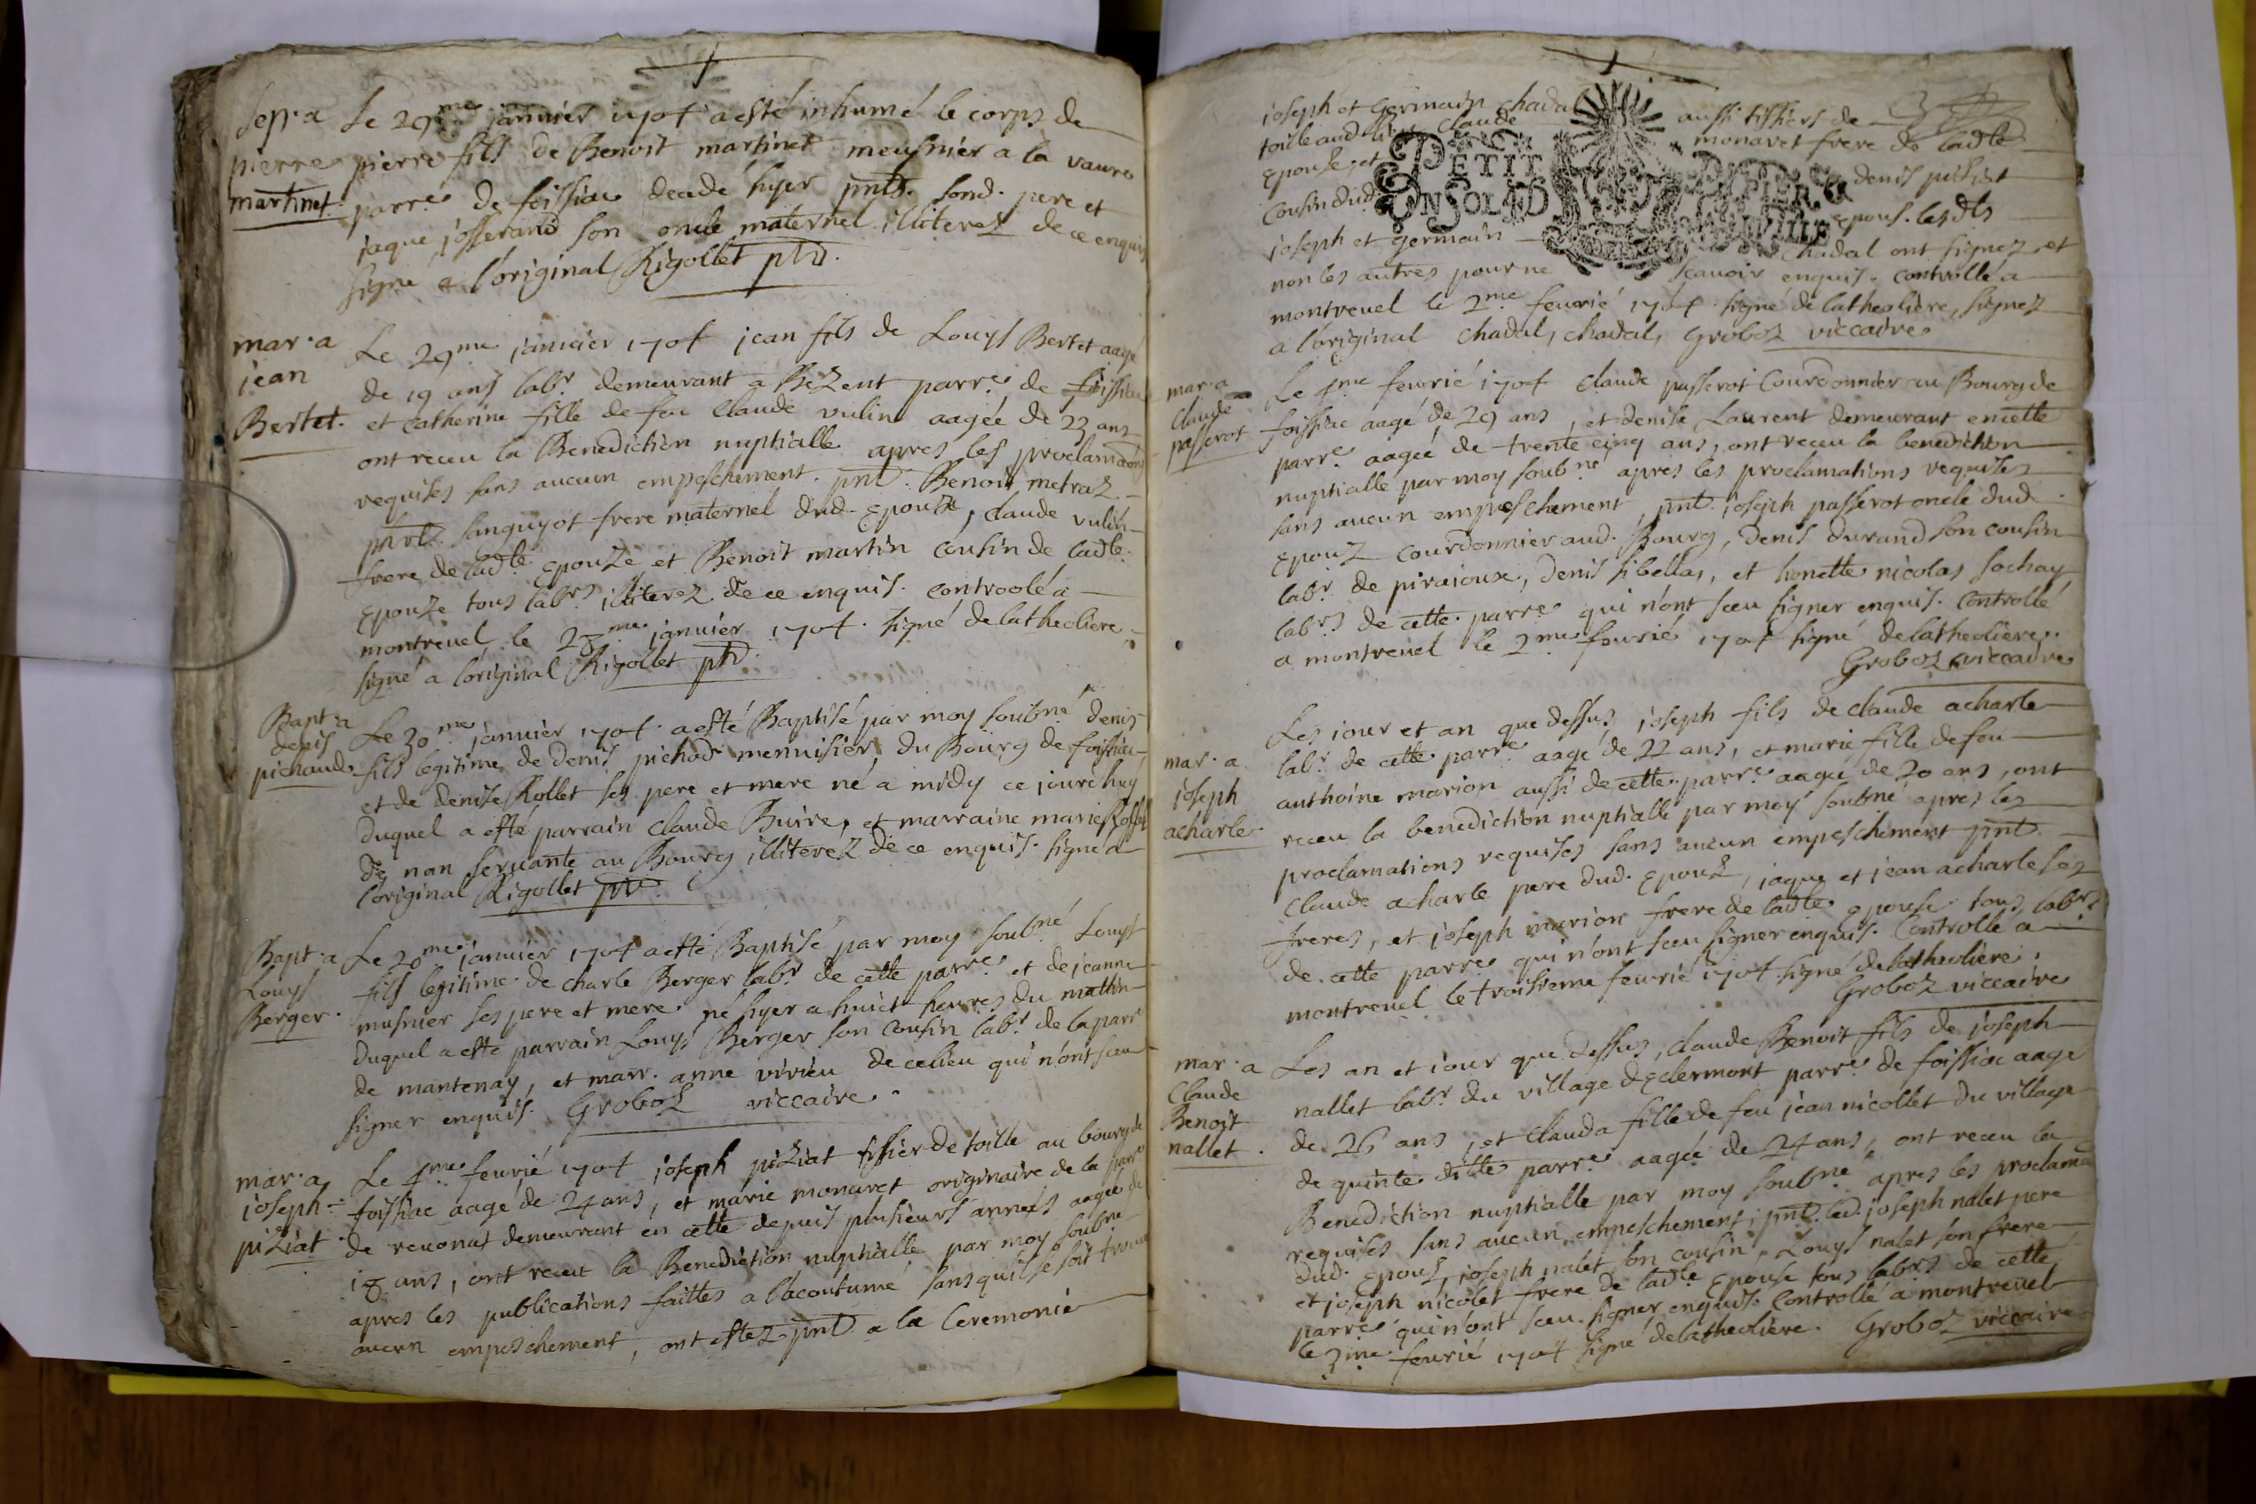 Sep.a
pierre
martinet
Le 29me janvier 1704 a esté inhumé le corps de
pierre fils de Benoit martinet meusnier a la vaure
parre de foissiac decedé hyer pnts. sond. pere et
jaque josserand son oncle maternel illiterez de ce enquis
signé a l'original Rigollet ptr.
mar.a
jean
Bertet.
Le 29me janvier 1704 jean fils de Louys Bertet aagé
de 19 ans labr demeurant a Bezent parre de foissiac
et catherine fille de feu Claude vulin aagée de 23 ans
ont receu la Benediction nuptialle apres les proclamaons
requises sans aucun empeschement. pnt. Benoit metraz
sanguyot frere maternel dud. Epouze, claude vulin
frere de ladte epouze et Benoit martin cousin de ladte
Epouze tous labrs illiterez de ce enquis. controolé a
montreuel le 28me janvier 1704. signé delatheoliere
signé a l'original Rigollet ptr.
Bapt.a
denis
pichaud
Le 30me janvier 1704. a esté Baptisé par moy soubné denis
fils legitime de denis pichod menuisier du Bourg de foissiac
et de denise Rollet ses pere et mere né a midy ce jourdhuy
duquel a esté parrain claude Buire, et marraine marie
de nan servante au Bourg illiterez de ce enquis. signé a
l'original Rigollet ptr.
Bapt.a
Louys
Berger.
Le 30me janvier 1704 a esté Baptisé par moy soubné Louys
fils legitime de charle Berger labr de cette parre et de jeanne
musnier ses pere et mere né hyer a huict heures du mattin
duquel a esté parrain Louys Berger son cousin labr de la parr
de mantenay, et marr. anne vivieu de ce lieu qui n'ont sceu
signer enquis. Groboz viccaire.
mar.a
joseph
piziat
Le 4me feurié 1704 joseph piziat tissier de toille au bourg de
foissiac aagé de 24 ans, et marie monaret originaire de la parre
de reuonas demeurant en cette depuis plusieurs années aagée de
18 ans, ont receu la Benediction nuptialle par moy soubné
apres les publications faittes a l'acoutumé sans qu'il se soit trouvé
aucun empeschement, ont estez pnt a la Ceremonie
joseph et Germain chadal aussi tissiers de
toile aud. lieu Claude monaret frere de ladte
Epouse, et denis piziat
Cousin dud. epous. lesdts
joseph et germain Chadal ont signez et
non les autres pour ne scauoir enquis. Controllé a
montreuel le 2me feurié 1704. signé delatheoliere, signez
a l'original Chadal, Chadal, Groboz viccaire
PETIT PAPIER
UN SOL 4 D LA FEUILLE
mar.a
Claude
passerot
Le 4me feurié 1704 Claude passerot Courdonnier au Bourg de
foissiac aagé de 29 ans, et denise Laurent demeurant en cette
parre aagée de trente cinq ans, ont receu la benediction
nuptialle par moy soubné apres les proclamations requises
sans aucun empeschement, pnt. joseph passerot oncle dud.
Epouz courdonnier aud. Bourg, denis durand son cousin
labr de piraioux, denis sibellas, et honette nicolas sochay
labrs de cette parre qui n'ont sceu signer enquis. Controllé
a montreuel le 2me feurié 1704 signé delatheoliere.
Groboz viccaire
mar.a
joseph
acharle
Les iour et an que dessus, joseph fils de claude acharle
labr de cette parre aagé de 22 ans, et marie fille de feu
anthoine marion aussi de cette parre aagée de 20 ans, ont
receu la benediction nuptialle par moy soubné apres les
proclamations requises sans aucun empeschement pnt.
Claude acharle pere dud. Epouz, jaque et jean acharle ses
freres, et joseph marion frere de ladte epouse tous labrs
de cette parre qui n'ont sceu signer enquis. Controllé a
montreuel le troisieme feurié 1704. signé delatheoliere.
Groboz viccaire
mar.a
Claude
Benoit
nallet.
Les an et iour que dessus, claude Benoit fils de joseph
nallet labr du village d'Eclermont parre de foissiac aagé
de 26 ans, et clauda fille de feu jean nicollet du village
de quinte ditte parre aagée de 24 ans, ont receu la
Benediction nuptialle par moy soubné apres les proclama
requises sans aucun empeschement, pnt. led. joseph nalet pere
dud. Epouz, joseph nalet son cousin, Louys nalet son frere
et joseph nicolet frere de ladte Epouse tous labrs de cette
parre qui n'ont sceu signer enquis. Controllé a montreuel
le 3me feurié 1704 signé delatheoliere. Groboz viccaire